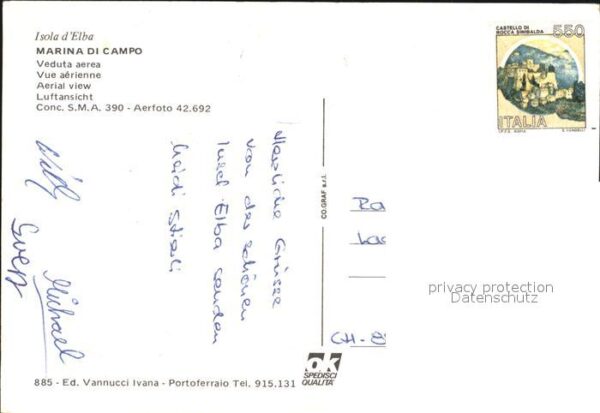 Isola d'Elba
MARINA DI CAMPO
Veduta aerea
Vue aérienne
Aerial view
Luftansicht
Conc. S.M.A. 390 - Aerfoto 42.692
CASTELLO DI
ROCCA SINIBALDA
550
ITALIA
I.P.Z.S. ROMA
E. VANGELLI
Herzliche Grüsse
von der schönen
Insel Elba senden
Heidi
Willy
Michael
CO.GRAF s.r.l.
Ra
La
CH-8
privacy protection
Datenschutz
OK
SPEDISCI
QUALITÀ
885 - Ed. Vannucci Ivana - Portoferraio Tel. 915.131